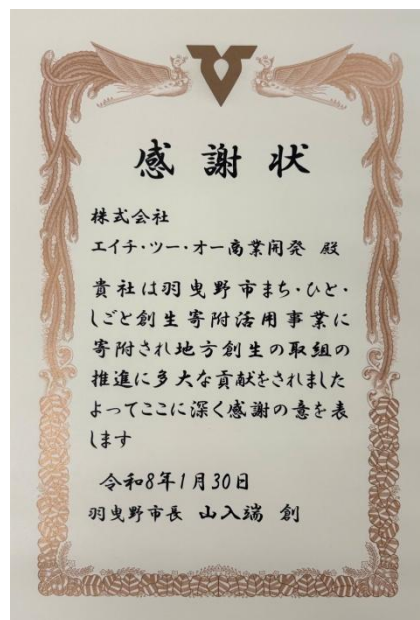 感謝状
株式会社
エイチ・ツー・オー商業開発 殿
貴社は羽曳野市まち・ひと・
しごと創生寄附活用事業に
寄附され地方創生の取組の
推進に多大な貢献をされました
よってここに深く感謝の意を表
します
令和8年1月30日
羽曳野市長 山入端 創